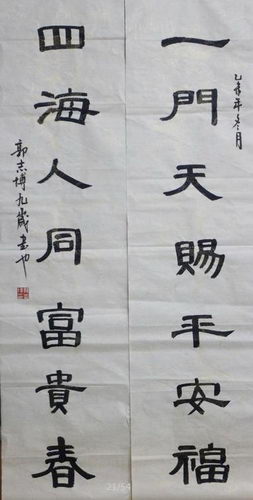 乙未年冬月
一門天賜平安福
四海人同富貴春
郭志博九歲書也
21/54